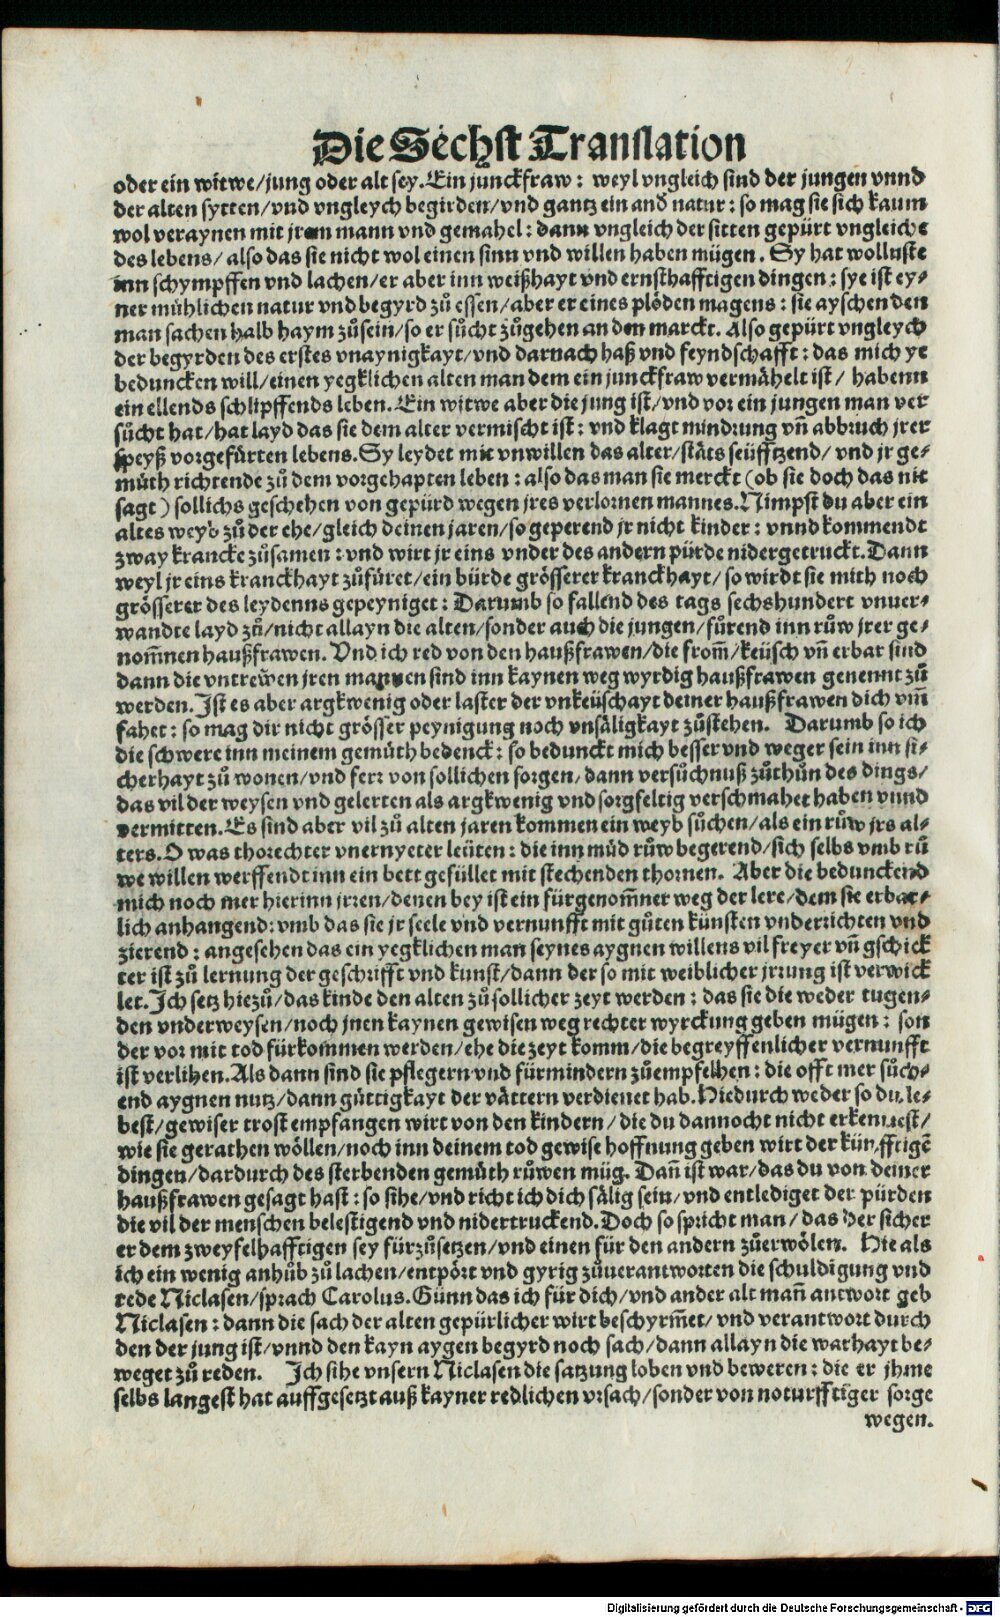 Die Sechst Translation
oder ein witwe/jung oder alt sey. Ein junckfraw: weyl vngleich sind der jungen vnnd
der alten sytten/vnd vngleych begirden/vnd gantz ein and natur: so mag sie sich kaum
wol veraynen mit jrem mann vnd gemahel: dann vngleich der sitten gepürt vngleiche
des lebens/ also das sie nicht wol einen sinn vnd willen haben mügen. Sy hat wolluste
inn schympffen vnd lachen/er aber inn weißhayt vnd ernsthafftigen dingen: sye ist ey-
ner mühlichen natur vnd begyrd zů essen/aber er eines plöden magens: sie ayschen den
man sachen halb haym zůsein/so er sůcht zůgehen an den marckt. Also gepürt vngleych
der begyrden des erstes vnaynigkayt/vnd darnach haß vnd feyndschafft: das mich ye
beduncken will/einen yegklichen alten man dem ein junckfraw vermähelt ist/ habenn
ein ellends schlipffends leben. Ein witwe aber die jung ist/vnd vor ein jungen man ver
sůcht hat/hat layd das sie dem alter vermischt ist: vnd klagt mindrung vñ abbruch jrer
speyß vorgefůrten lebens. Sy leydet mit vnwillen das alter/stäts seüfftzend/ vnd jr ge-
můth richtende zů dem vorgehapten leben: also das man sie merckt (ob sie doch das nit
sagt) sollichs geschehen von gepürd wegen jres verlornen mannes. Nimpst du aber ein
altes weyb zů der ehe/gleich deinen jaren/so geperend jr nicht kinder: vnnd kommendt
zway krancke zůsamen: vnd wirt jr eins vnder des andern pürde nidergetruckt. Dann
weyl jr eins kranckhayt zůfüret/ein bürde grösserer kranckhayt/ so wirdt sie mith noch
grösserer des leydenns gepeyniget: Darumb so fallend des tags sechshundert vnuer-
wandte layd zů/nicht allayn die alten/sonder auch die jungen/fůrend inn růw jrer ge-
nom̃nen haußfrawen. Vnd ich red von den haußfrawen/die from̃/keüsch vñ erbar sind
dann die vntrewen jren mannen sind inn kaynen weg wyrdig haußfrawen genennt zů
werden. Ist es aber argkwenig oder laster der vnkeüschayt deiner haußfrawen dich vm̃
fahet: so mag dir nicht grösser peynigung noch vnsäligkayt zůstehen. Darumb so ich
die schwere inn meinem gemüth bedenck: so bedunckt mich besser vnd weger sein inn si-
cherhayt zů wonen/vnd ferr von sollichen sorgen/dann versůchnuß zůthůn des dings/
das vil der weysen vnd gelerten als argkwenig vnd sorgfeltig verschmahet haben vnnd
vermitten. Es sind aber vil zů alten jaren kommen ein weyb sůchen/als ein růw jrs al-
ters. O was thorechter vnernyeter leüten: die inn můd růw begerend/sich selbs vmb rů
we willen werffendt inn ein bett gefüllet mit stechenden thornen. Aber die bedunckend
mich noch mer hierinn jrren/denen bey ist ein fürgenom̃ner weg der lere/dem sie erbar-
lich anhangend: vmb das sie jr seele vnd vernunfft mit gůten künsten vnderrichten vnd
zierend: angesehen das ein yegklichen man seynes aygnen willens vil freyer vñ gschick
ter ist zů lernung der geschrifft vnd kunst/dann der so mit weiblicher jrrung ist verwick
let. Ich setz hiezů/das kinde den alten zů sollicher zeyt werden: das sie die weder tugen-
den vnderweysen/noch jnen kaynen gewisen weg rechter wyrckung geben mügen: son
der vor mit tod fürkommen werden/ehe die zeyt komm/die begreyffenlicher vernunfft
ist verlihen. Als dann sind sie pflegern vnd fürmindern zůempfelhen: die offt mer sůch-
end aygnen nutz/dann güttigkayt der vättern verdienet hab. Hiedurch weder so du le-
best/gewiser trost empfangen wirt von den kindern/die du dannocht nicht erkennest/
wie sie gerathen wöllen/noch inn deinem tod gewise hoffnung geben wirt der künfftigẽ
dingen/dardurch des sterbenden gemüth růwen müg. Dañ ist war/das du von deiner
haußfrawen gesagt hast: so sihe/vnd richt ich dich sälig sein/vnd entlediget der pürden
die vil der menschen belestigend vnd nidertruckend. Doch so spricht man/das der sicher
er dem zweyfelhafftigen sey fürzůsetzen/vnd einen für den andern zůerwölen. Hie als
ich ein wenig anhůb zů lachen/entpört vnd gyrig zůuerantworten die schuldigung vnd
rede Niclasen/sprach Carolus. Günn das ich für dich/vnd ander alt mañ antwort geb
Niclasen: dann die sach der alten gepürlicher wirt beschyrm̃et/vnd verantwort durch
den der jung ist/vnnd den kayn aygen begyrd noch sach/dann allayn die warhayt be-
weget zů reden. Ich sihe vnsern Niclasen die satzung loben vnd beweren: die er jhme
selbs langest hat auffgesetzt auß kayner redlichen vrsach/sonder von noturfftiger sorge
wegen.
Digitalisierung gefördert durch die Deutsche Forschungsgemeinschaft - DFG